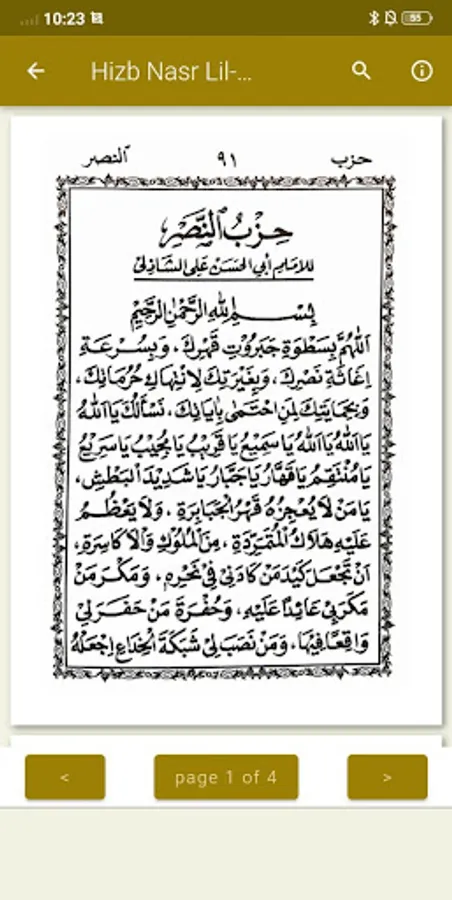 10:23
55
Hizb Nasr Lil-...
حزب ٩١ النصر
حِزْبُ النَّصْرِ
لِلْإِمَامِ أَبِي الْحَسَنِ عَلِي الشَّاذِلِيّ
بِسْمِ اللهِ الرَّحْمٰنِ الرَّحِيْمِ
اَللّٰهُمَّ بِسَطْوَةِ جَبَرُوْتِ قَهْرِكَ، وَبِسُرْعَةِ
اِغَاثَةِ نَصْرِكَ، وَبِغَيْرَتِكَ لِانْتِهَاكِ حُرُمَاتِكَ،
وَبِحِمَايَتِكَ لِمَنِ احْتَمٰى بِاٰيَاتِكَ، نَسْأَلُكَ يَا اَللهُ
يَا اَللهُ يَا اَللهُ يَا سَمِيْعُ يَا قَرِيْبُ يَا مُجِيْبُ يَا سَرِيْعُ
يَا مُنْتَقِمُ يَا قَهَّارُ يَا جَبَّارُ يَا شَدِيْدَ الْبَطْشِ،
يَا مَنْ لَا يُعْجِزُهُ قَهْرُ الْجَبَابِرَةِ، وَلَا يَعْظُمُ
عَلَيْهِ هَلَاكُ الْمُتَمَرِّدَةِ، مِنَ الْمُلُوْكِ وَالْاَكَاسِرَةِ،
اَنْ تَجْعَلَ كَيْدَ مَنْ كَادَنِيْ فِيْ نَحْرِهِ، وَمَكْرَ مَنْ
مَكَرَ بِيْ عَائِدًا عَلَيْهِ، وَحُفْرَةَ مَنْ حَفَرَ لِيْ
وَاقِعًا فِيْهَا، وَمَنْ نَصَبَ لِيْ شَبَكَةَ الْخِدَاعِ اِجْعَلْهُ
< page 1 of 4 >